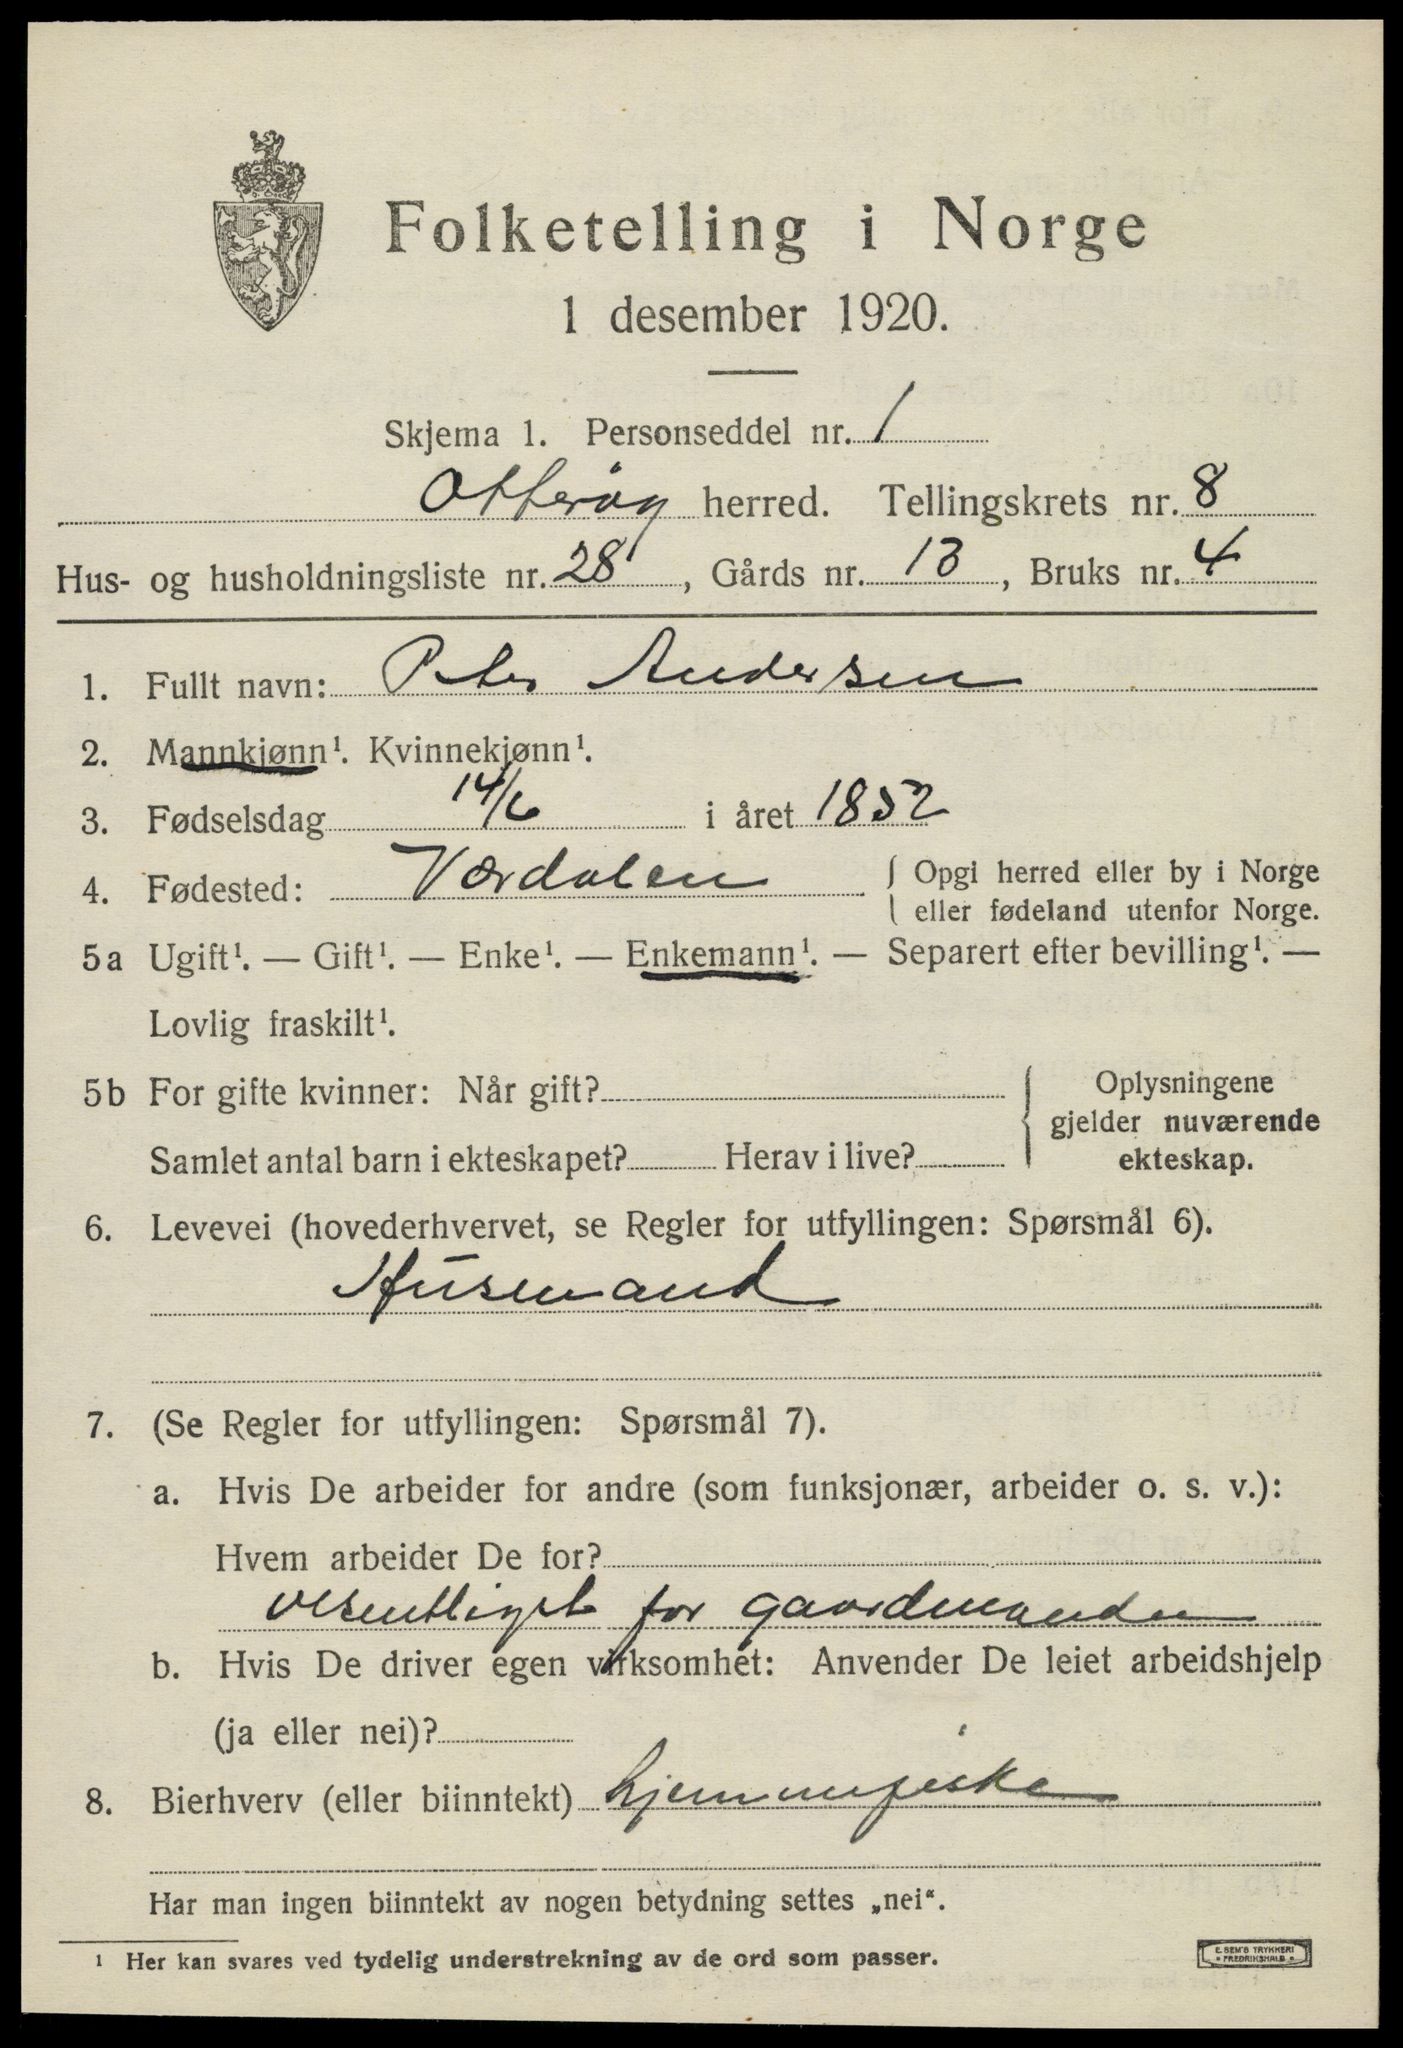 Folketelling i Norge
1 desember 1920.
Skjema 1. Personseddel nr. 1
Otterøy herred. Tellingskrets nr. 8
Hus- og husholdningsliste nr. 28, Gårds nr. 13, Bruks nr. 4
1. Fullt navn: Peter Andersen
2. Mannkjønn¹. Kvinnekjønn¹.
3. Fødselsdag 14/6 i året 1852
4. Fødested: Værdalen { Opgi herred eller by i Norge
eller fødeland utenfor Norge.
5a Ugift¹. — Gift¹. — Enke¹. — Enkemann¹. — Separert efter bevilling¹. —
Lovlig fraskilt¹.
5b For gifte kvinner: Når gift? { Oplysningene
gjelder nuværende
Samlet antal barn i ekteskapet? Herav i live? ekteskap.
6. Levevei (hovederhvervet, se Regler for utfyllingen: Spørsmål 6).
Husmand
7. (Se Regler for utfyllingen: Spørsmål 7).
a. Hvis De arbeider for andre (som funksjonær, arbeider o. s. v.):
Hvem arbeider De for?
vesentligst for gaardmanden
b. Hvis De driver egen virksomhet: Anvender De leiet arbeidshjelp
(ja eller nei)?
8. Bierhverv (eller biinntekt) hjemmefiske
Har man ingen biinntekt av nogen betydning settes „nei“.
¹ Her kan svares ved tydelig understrekning av de ord som passer.
E. SEM'S TRYKKERI
FREDRIKSHALD